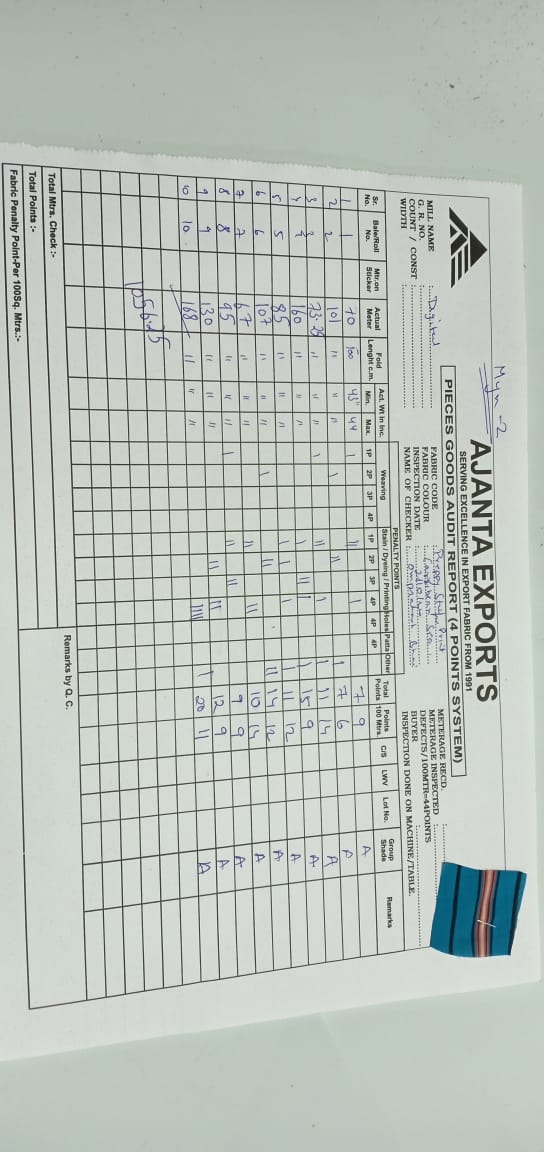 Myn-2
AJANTA EXPORTS
SERVING EXCELLENCE IN EXPORT FABRIC FROM 1991
PIECES GOODS AUDIT REPORT (4 POINTS SYSTEM)
MILL NAME : Digital
G. R. NO.
COUNT / CONST :
WIDTH
FABRIC CODE : Stripe Print
FABRIC COLOUR : Sea
INSPECTION DATE
NAME OF CHECKER :
METERAGE RECD.
METERAGE INSPECTED
DEFECTS/100MTR=44POINTS
BUYER
INSPECTION DONE ON MACHINE/TABLE.
PENALTY POINTS
Sr. No. Bale/Roll No. Mtr.on Sticker Actual Meter Fold Lenght c.m. Act. Wt in Inc. Min. Max. Weaving 1P 2P 3P 4P Stain / Dyeing / Printing 1P 2P 3P 4P Holes 4P Patta 4P Other Total Points Points 100 Mtrs. C/S LWV Lot No. Group Shade Remarks
1 1 70 100 43" 44 1 || 1 7 9 A
2 2 101 " " " 1 || 1 7 6 A
3 3 73.25 " " " 1 || 1 1 11 14 A
4 4 160 " " " 1 || 1 15 9 A
5 5 85 " " " 1 1 1 11 12 A
6 6 107 " " " 1 || || 14 12 A
7 7 67 " " " || ||| 10 14 A
8 8 95 " " " 1 || || 9 9 A
9 9 130 " " " || || 12 9 A
10 10 168 " " " |||| 1 20 11 A
1056.25
Total Mtrs. Check :-
Total Points :-
Fabric Penalty Point-Per 100Sq. Mtrs.:-
Remarks by Q. C.